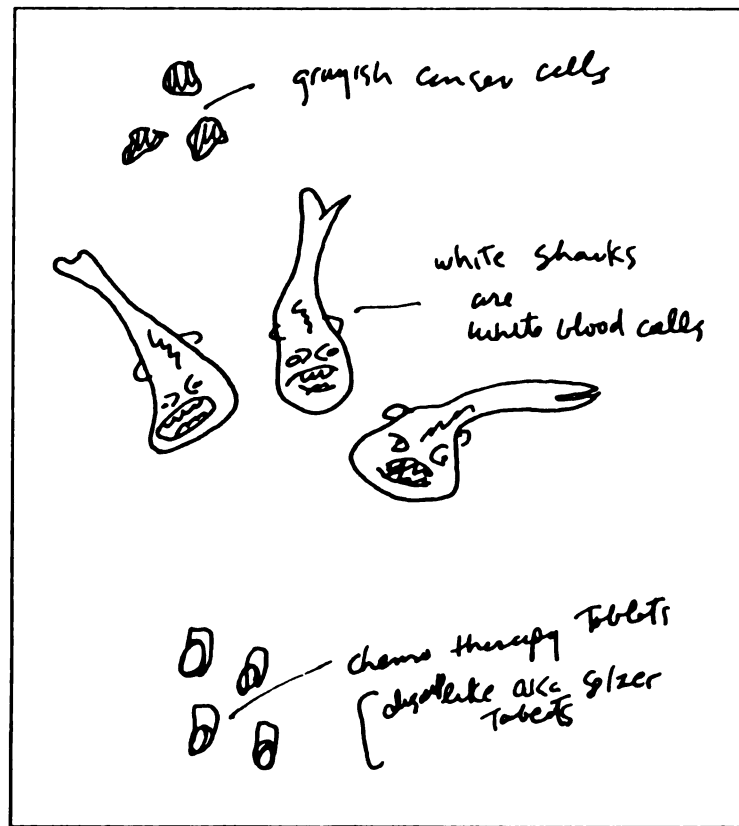 grayish canser cells
white sharks
are
white blood cells
chemo therapy Tablets
like alka selzer
Tablets